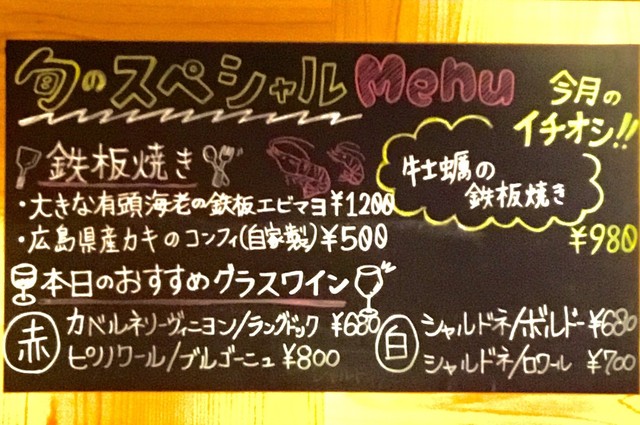 旬のスペシャルMenu
今月の
イチオシ!!
牡蠣の
鉄板焼き
¥980
鉄板焼き
・大きな有頭海老の鉄板エビマヨ¥1200
・広島県産カキのコンフィ(自家製)¥500
本日のおすすめグラスワイン
赤
カベルネソーヴィニヨン/ラングドック ¥680
ピノノワール/ブルゴーニュ ¥800
白
シャルドネ/ボルドー ¥680
シャルドネ/ロワール ¥700